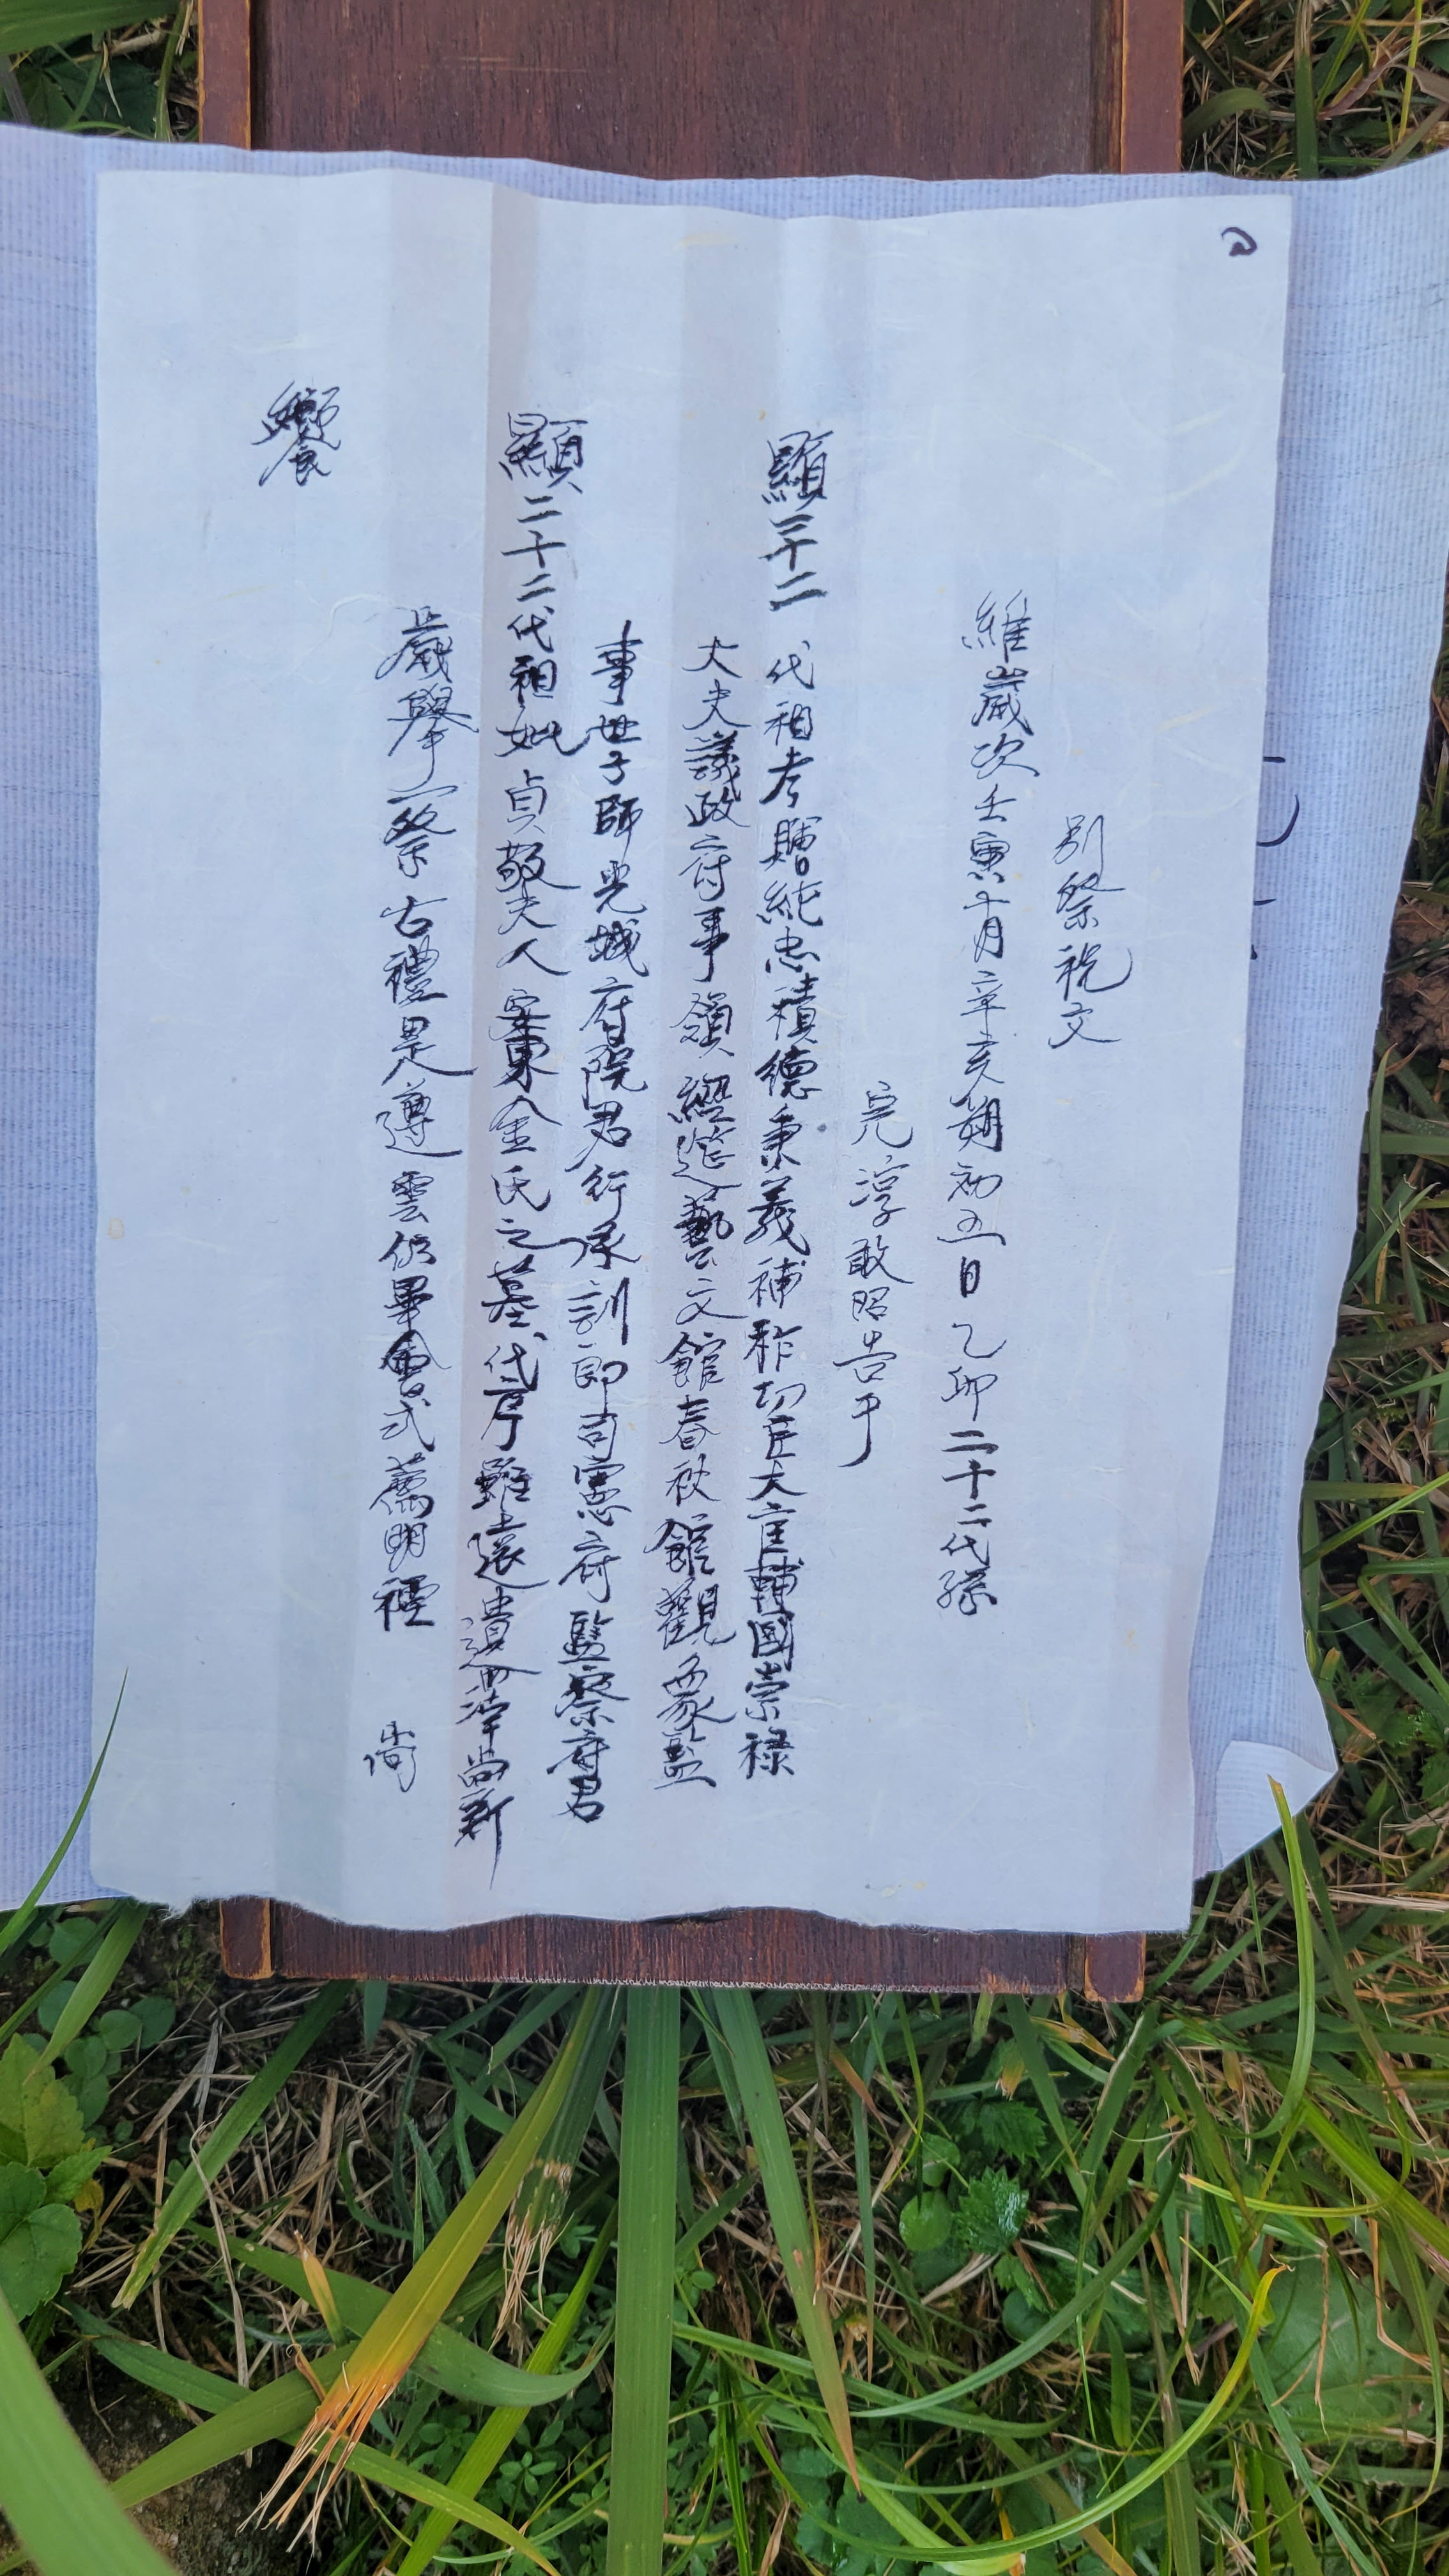 別祭祝文
維歲次壬寅十月辛亥朔初五日乙卯二十二代孫
完淳敢昭告于
顯二十二代祖考贈純忠積德秉義補祚功臣大匡輔國崇祿
大夫議政府事領經筵藝文館春秋館觀象監
事世子師光城府院君行承訓郎司憲府監察府君
顯二十二代祖妣貞敬夫人金氏之墓代序雖遠遺澤尚新
歲擧一祭古禮是遵雲仍畢會式薦明禋 尚
饗